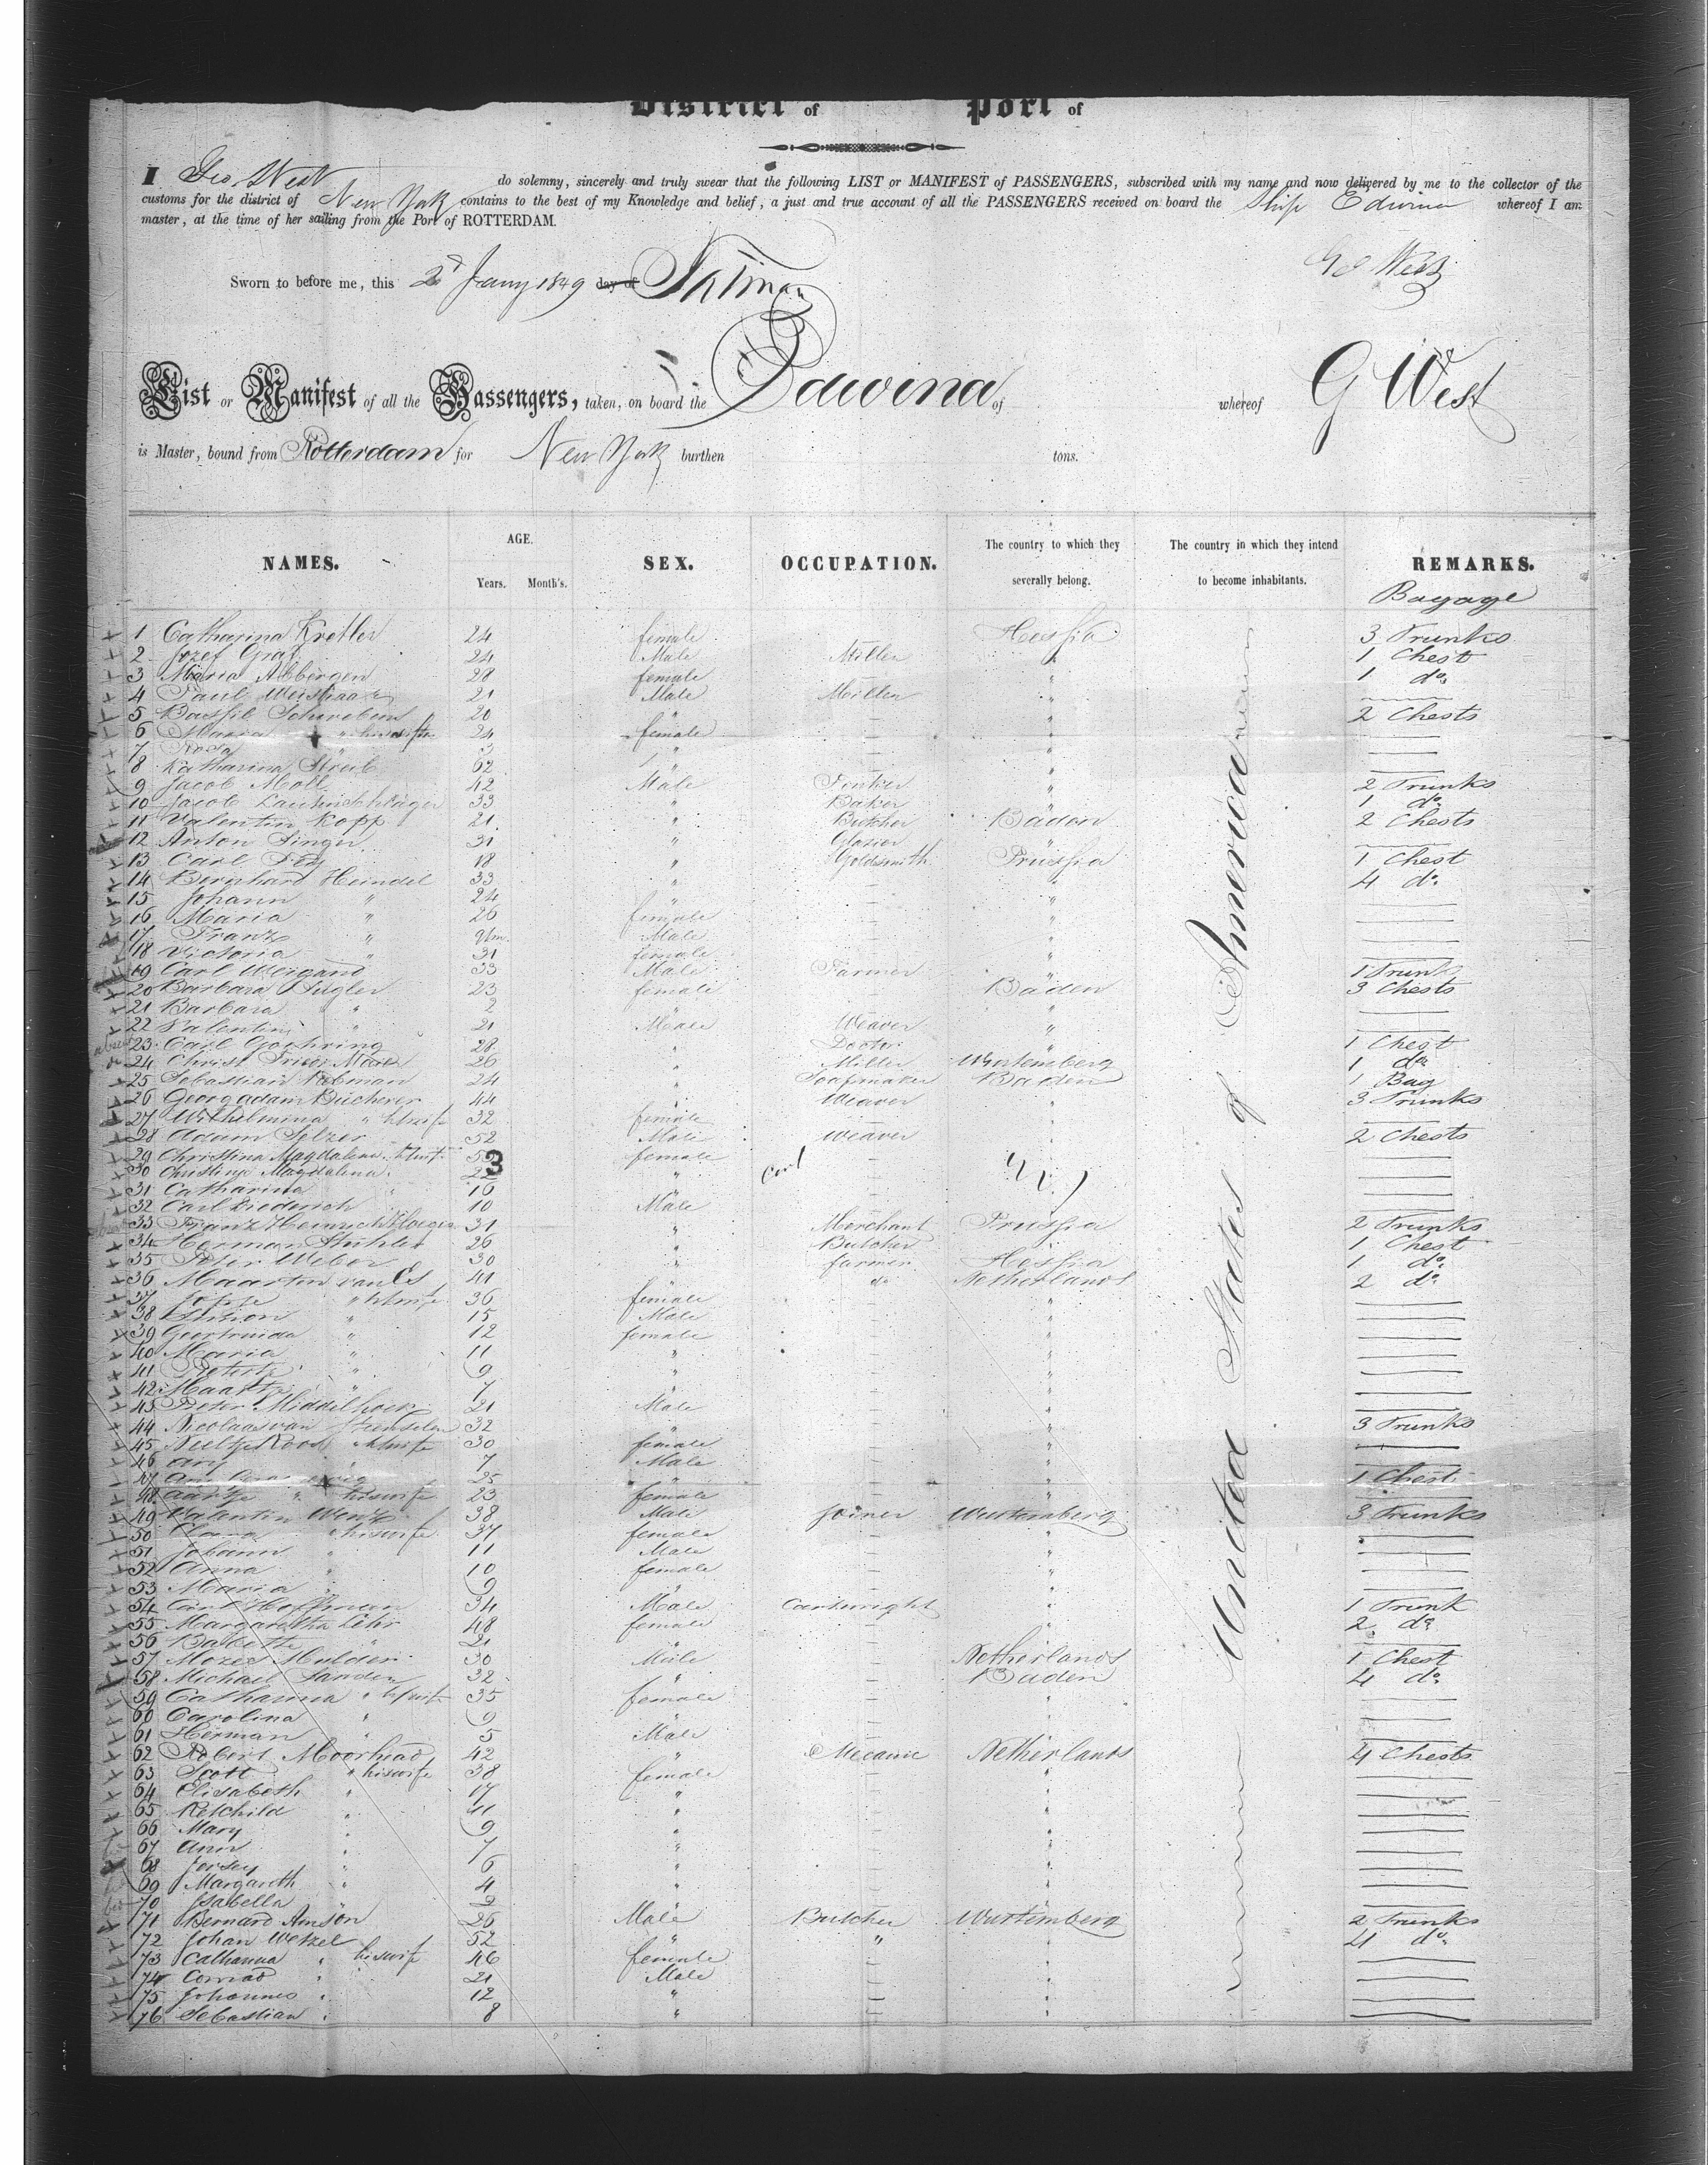 District of Port of
I Geo. West do solemny, sincerely and truly swear that the following LIST or MANIFEST of PASSENGERS, subscribed with my name and now delivered by me to the collector of the
customs for the district of New York contains to the best of my Knowledge and belief, a just and true account of all the PASSENGERS received on board the Ship Edwina whereof I am
master, at the time of her sailing from the Port of ROTTERDAM.
G West
Sworn to before me, this 2d Jany 1849 day of
List or Manifest of all the Passengers, taken, on board the Edwina of whereof G West
is Master, bound from Rotterdam for New York burthen tons.
NAMES. AGE. Years. Month's. SEX. OCCUPATION. The country to which they severally belong. The country in which they intend to become inhabitants. REMARKS.
Bagage
United States of America
1 Catharina Kretler 24 female Hessia 3 Trunks
2 Jozef Graf 24 Male Miller " 1 Chest
3 Maria Abbergen 28 female — " 1 do
4 Paul 21 Male Miller " —
5 20 " — " 2 Chests
6 Maria " hiswife 24 female — " —
7 Rosa " 3 " — " —
8 Katharina 62 " — " —
9 Jacob Moll 42 Male " 2 Trunks
10 Jacob 33 " Baker " 1 do
11 Valentin Kopp 21 " Butcher Baden 2 Chests
12 Anton Singer 31 " Glazier " —
13 Carl Fey 18 " Goldsmith Prussia 1 Chest
14 Bernhard Heindel 33 " — " 4 do
15 Johann " 24 " — " —
16 Maria " 26 female — " —
17 Franz " Male — " —
18 Victoria 31 female — " —
19 Carl Weigand 33 Male Farmer " 1 Trunk
20 Barbara 23 female Baden 3 Chests
21 Barbara " 2 " — " —
22 Valentin " 21 Male Weaver " —
23 Carl Goehring 28 " Doctor " 1 Chest
24 Christ 26 " Miller Wurtemberg 1 do
25 Sebastian 24 " Soapmaker Baden 1 Bag
26 Georg adam Bucherer 44 " Weaver " 3 Trunks
27 Wilhelmina " hiswife 32 female — " —
28 Adam Selzer 52 Male Weaver " 2 Chests
29 Christina Magdalena hiswife female — —
3
30 Christina Magdalena 22 " — —
31 Catharina " 16 " — —
32 Carl Diederich 10 Male — —
33 Franz Heinrich 31 " Merchant Prussia 2 Trunks
34 Herman 26 " Butcher " 1 Chest
35 Peter Weber 30 " farmer Hessia 1 do
36 Maarten van Es 41 " do Netherlands 2 do
37 " hiswife 36 female — " —
38 15 Male — " —
39 Geertruida " 12 female — " —
40 Maria " 11 " — " —
41 Pietertje " 9 " — " —
42 Maartje " 7 " — " —
43 Pieter Middelhoek 21 Male — " —
44 Nicolaas van 32 " — " 3 Trunks
45 Neeltje Roos hiswife 30 female — " —
46 Ary " 7 Male — " —
47 25 " — " 1 Chest
48 Aartje " hiswife 23 female — " —
49 Valentin Wenz 38 Male Joiner Wurtemberg 3 Trunks
50 Clara " hiswife 37 female — " —
51 Johann " 11 Male — " —
52 Anna " 10 female — " —
53 Maria " 9 " — " —
54 Carl Hoffman 34 Male Cartwright " 1 Trunk
55 Margaretha Lehr 48 female — " 2 do
56 Babette " 21 " — " —
57 Mozes Mulder 30 Male Netherlands 1 Chest
58 Michael Sander 32 " — Baden 4 do
59 Catharina " hiswife 35 female — " —
60 Carolina " 9 " — " —
61 Herman " 5 Male — " —
62 Robert Moorhead 42 " Mecanic Netherlands 4 Chests
63 Scott " hiswife 38 female — " —
64 Elisabeth " 17 " — " —
65 Retchild " 11 " — " —
66 Mary " 9 " — " —
67 Ann " 7 " — " —
68 Jersey " 6 " — " —
69 Margareth " 4 " — " —
70 Isabella " 2 " — " —
71 Bernard Amson 26 Male Butcher Wurtemberg 2 Trunks
72 Johan Wetzel 52 " " " 4 do
73 Catharina " hiswife 46 female — " —
74 Conrad " 21 Male — " —
75 Johannes " 12 " — " —
76 Sebastian " 8 " — " —